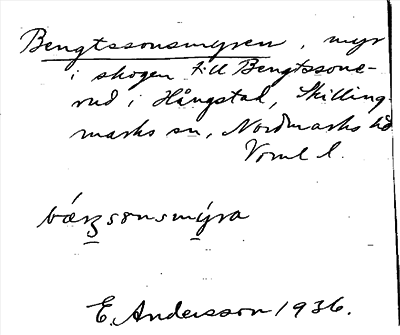 Bengtssonsmyren, myr
i skogen till Bengtssons-
rud i Hångstad, Skilling-
marks sn, Nordmarks hd
Vrml l.
bæŋsonsmýra
E. Andersson 1936.